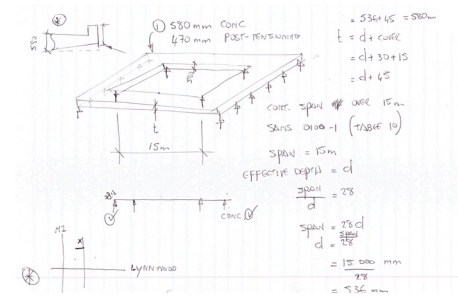 580
① 580mm CONC
470 mm POST-TENSIONING
580
t
15m
CONC
N1
X
LYNNWOOD
= 536+45 = 580mm
t = d + COVER
= d + 30 + 15
= d + 45
CONT. SPAN OVER 15m
SANS 0100-1 (TABLE 10)
SPAN = 15m
EFFECTIVE DEPTH = d
SPAN
d
= 28
SPAN = 28d
d = SPAN
28
= 15 000 mm
28
= 536 mm